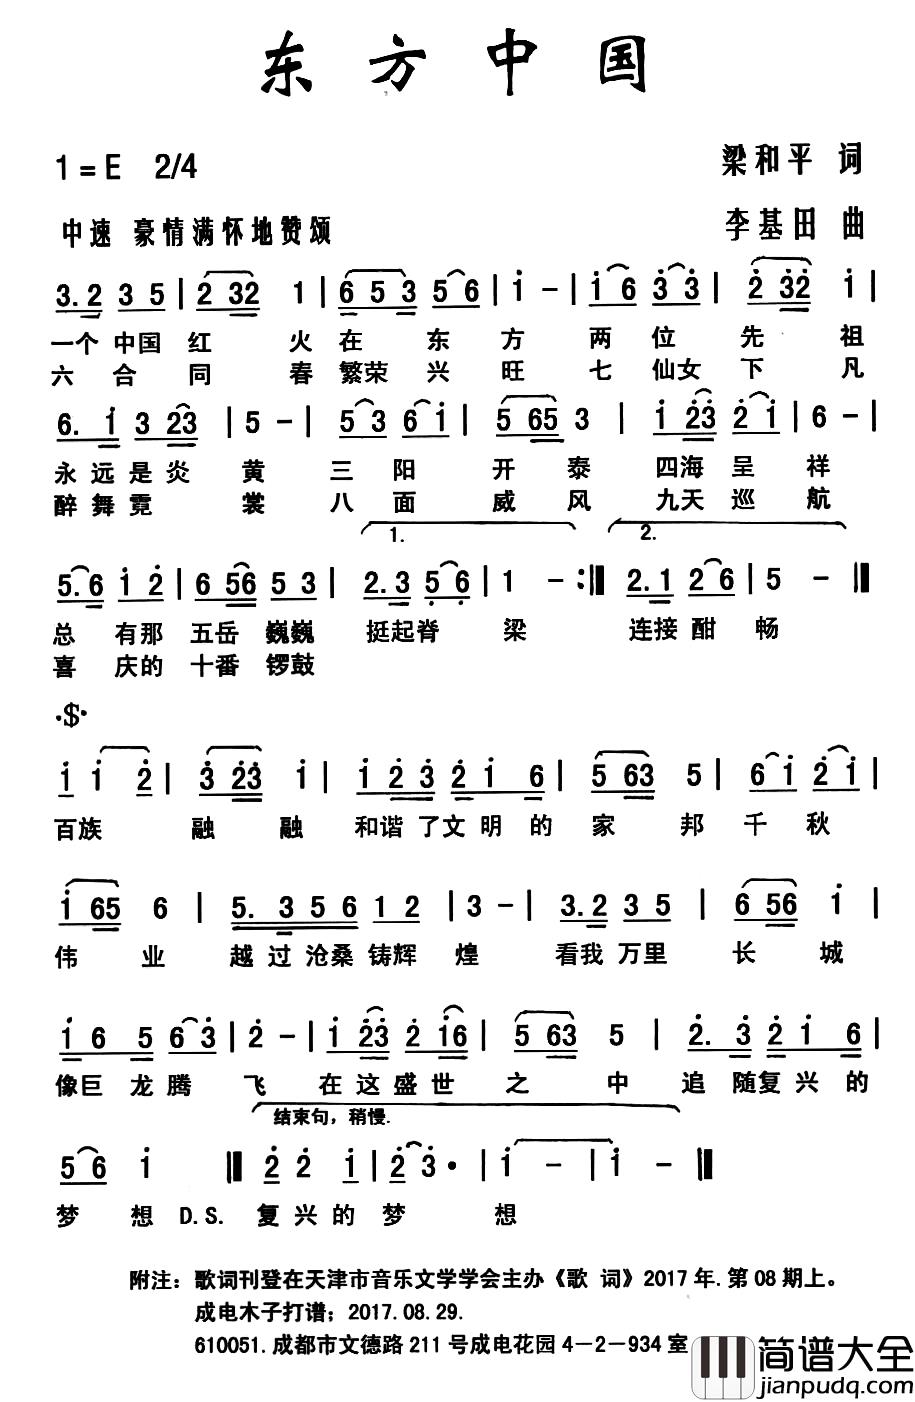 东方中国
1=E 2/4
梁和平 词
中速 豪情满怀地赞颂
李基田 曲
3.2 3 5 | 2 32 1 | 6 5 3 5 6 | i - | i 6 3 3 | 2 32 i |
一个 中国 红 火 在 东 方 两 位 先 祖
六 合 同 春 繁荣 兴 旺 七 仙女 下 凡
6. i 3 23 | 5 - | 5 3 6 i | 5 65 3 | i 23 2 i | 6 - |
永 远 是 炎 黄 三 阳 开 泰 四海 呈 祥
醉 舞 霓 裳 八 面 威 风 九天 巡 航
1. 2.
5.6 i 2 | 6 56 5 3 | 2.3 5 6 | 1 - :‖ 2.1 2 6 | 5 - ‖
总 有那 五岳 巍巍 挺起脊 梁 连接 酣 畅
喜 庆的 十番 锣鼓
·$·
i i 2 | 3 23 i | i 2 3 2 i 6 | 5 63 5 | 6 i 2 i |
百族 融 融 和谐 了文 明 的 家 邦 千 秋
i 65 6 | 5. 3 5 6 1 2 | 3 - | 3.2 3 5 | 6 56 i |
伟 业 越 过 沧桑 铸辉 煌 看我 万里 长 城
i 6 5 6 3 | 2 - | i 23 2 i6 | 5 63 5 | 2. 3 2 i 6 |
像巨 龙 腾 飞 在 这 盛 世 之 中 追 随复 兴 的
结束句，稍慢.
5 6 i ‖ 2 2 i | 2 3· | i - | i - ‖
梦 想 D.S. 复 兴 的 梦 想
附注：歌词刊登在天津市音乐文学学会主办《歌 词》2017年.第08期上。
成电木子打谱；2017.08.29.
610051.成都市文德路211号成电花园4－2－934室
简谱大全
jianpudq.com